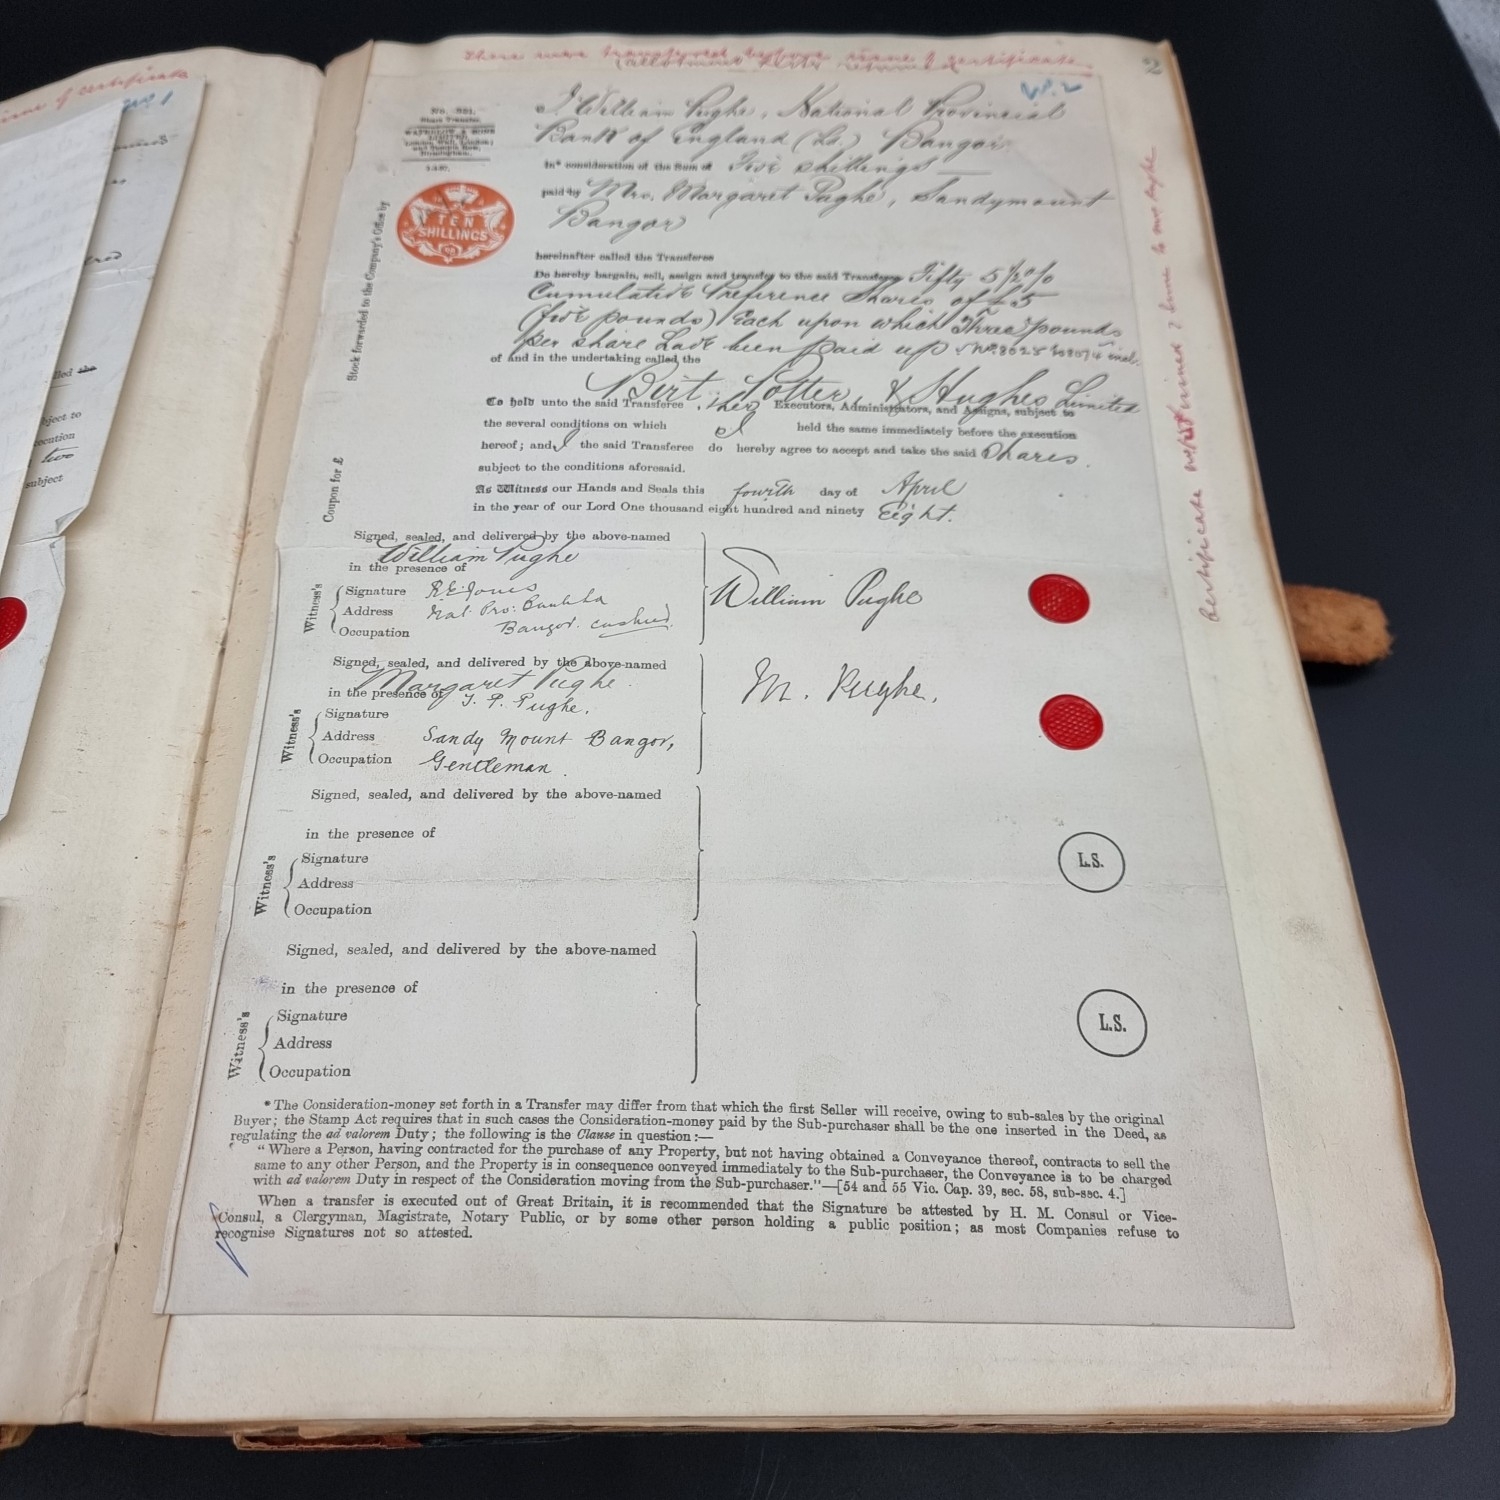 issue of certificate
No 1
These were transferred before issue of certificate
(allotment letter returned)
2
No. 2
No. 821.
Share Transfer.
WATERLOW & SONS
LIMITED,
London Wall, London;
and Temple Row,
Birmingham.
I William Pughe, National Provincial
Bank of England (Ld.) Bangor
In* consideration of the Sum of Five shillings
paid by Mrs. Margaret Pughe, Sandymount
Bangor
TEN
SHILLINGS
hereinafter called the Transferee
Do hereby bargain, sell, assign and transfer to the said Transferee Fifty 5 1/2 %
Cumulative Preference Shares of £5
(five pounds) Each upon which Three pounds
per share have been paid up Nos. 8025 to 8074 incl.
of and in the undertaking called the
Birt, Potter, & Hughes Limited
To hold unto the said Transferee, her Executors, Administrators, and Assigns, subject to
the several conditions on which I held the same immediately before the execution
hereof; and I the said Transferee do hereby agree to accept and take the said Shares
subject to the conditions aforesaid.
As Witness our Hands and Seals this fourth day of April
in the year of our Lord One thousand eight hundred and ninety Eight.
Stock forwarded to the Company's Office by
Coupon for £
Signed, sealed, and delivered by the above-named
William Pughe
in the presence of
Witness's
Signature R E Jones
Address Nat. Pro: Bank Ld
Bangor.
Occupation cashier
William Pughe
Signed, sealed, and delivered by the above-named
Margaret Pughe.
in the presence of
Witness's
Signature T. P. Pughe.
Address Sandy Mount Bangor,
Occupation Gentleman.
M. Pughe.
Signed, sealed, and delivered by the above-named
in the presence of
Witness's
Signature
Address
Occupation
L.S.
Signed, sealed, and delivered by the above-named
in the presence of
Witness's
Signature
Address
Occupation
L.S.
* The Consideration-money set forth in a Transfer may differ from that which the first Seller will receive, owing to sub-sales by the original
Buyer; the Stamp Act requires that in such cases the Consideration-money paid by the Sub-purchaser shall be the one inserted in the Deed, as
regulating the ad valorem Duty; the following is the Clause in question:—
"Where a Person, having contracted for the purchase of any Property, but not having obtained a Conveyance thereof, contracts to sell the
same to any other Person, and the Property is in consequence conveyed immediately to the Sub-purchaser, the Conveyance is to be charged
with ad valorem Duty in respect of the Consideration moving from the Sub-purchaser."—[54 and 55 Vic. Cap. 39, sec. 58, sub-sec. 4.]
When a transfer is executed out of Great Britain, it is recommended that the Signature be attested by H. M. Consul or Vice-
Consul, a Clergyman, Magistrate, Notary Public, or by some other person holding a public position; as most Companies refuse to
recognise Signatures not so attested.
Certificate to Mrs Pughe
the
ject to
ecution
two
subject